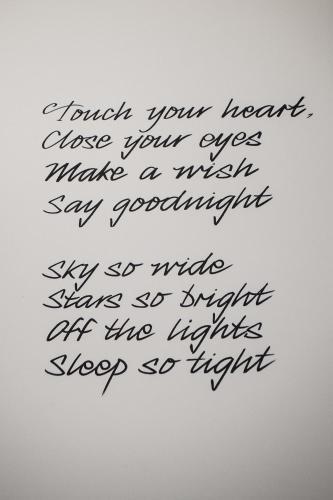 Touch your heart,
Close your eyes
Make a wish
Say goodnight
Sky so wide
Stars so bright
Off the lights
Sleep so tight